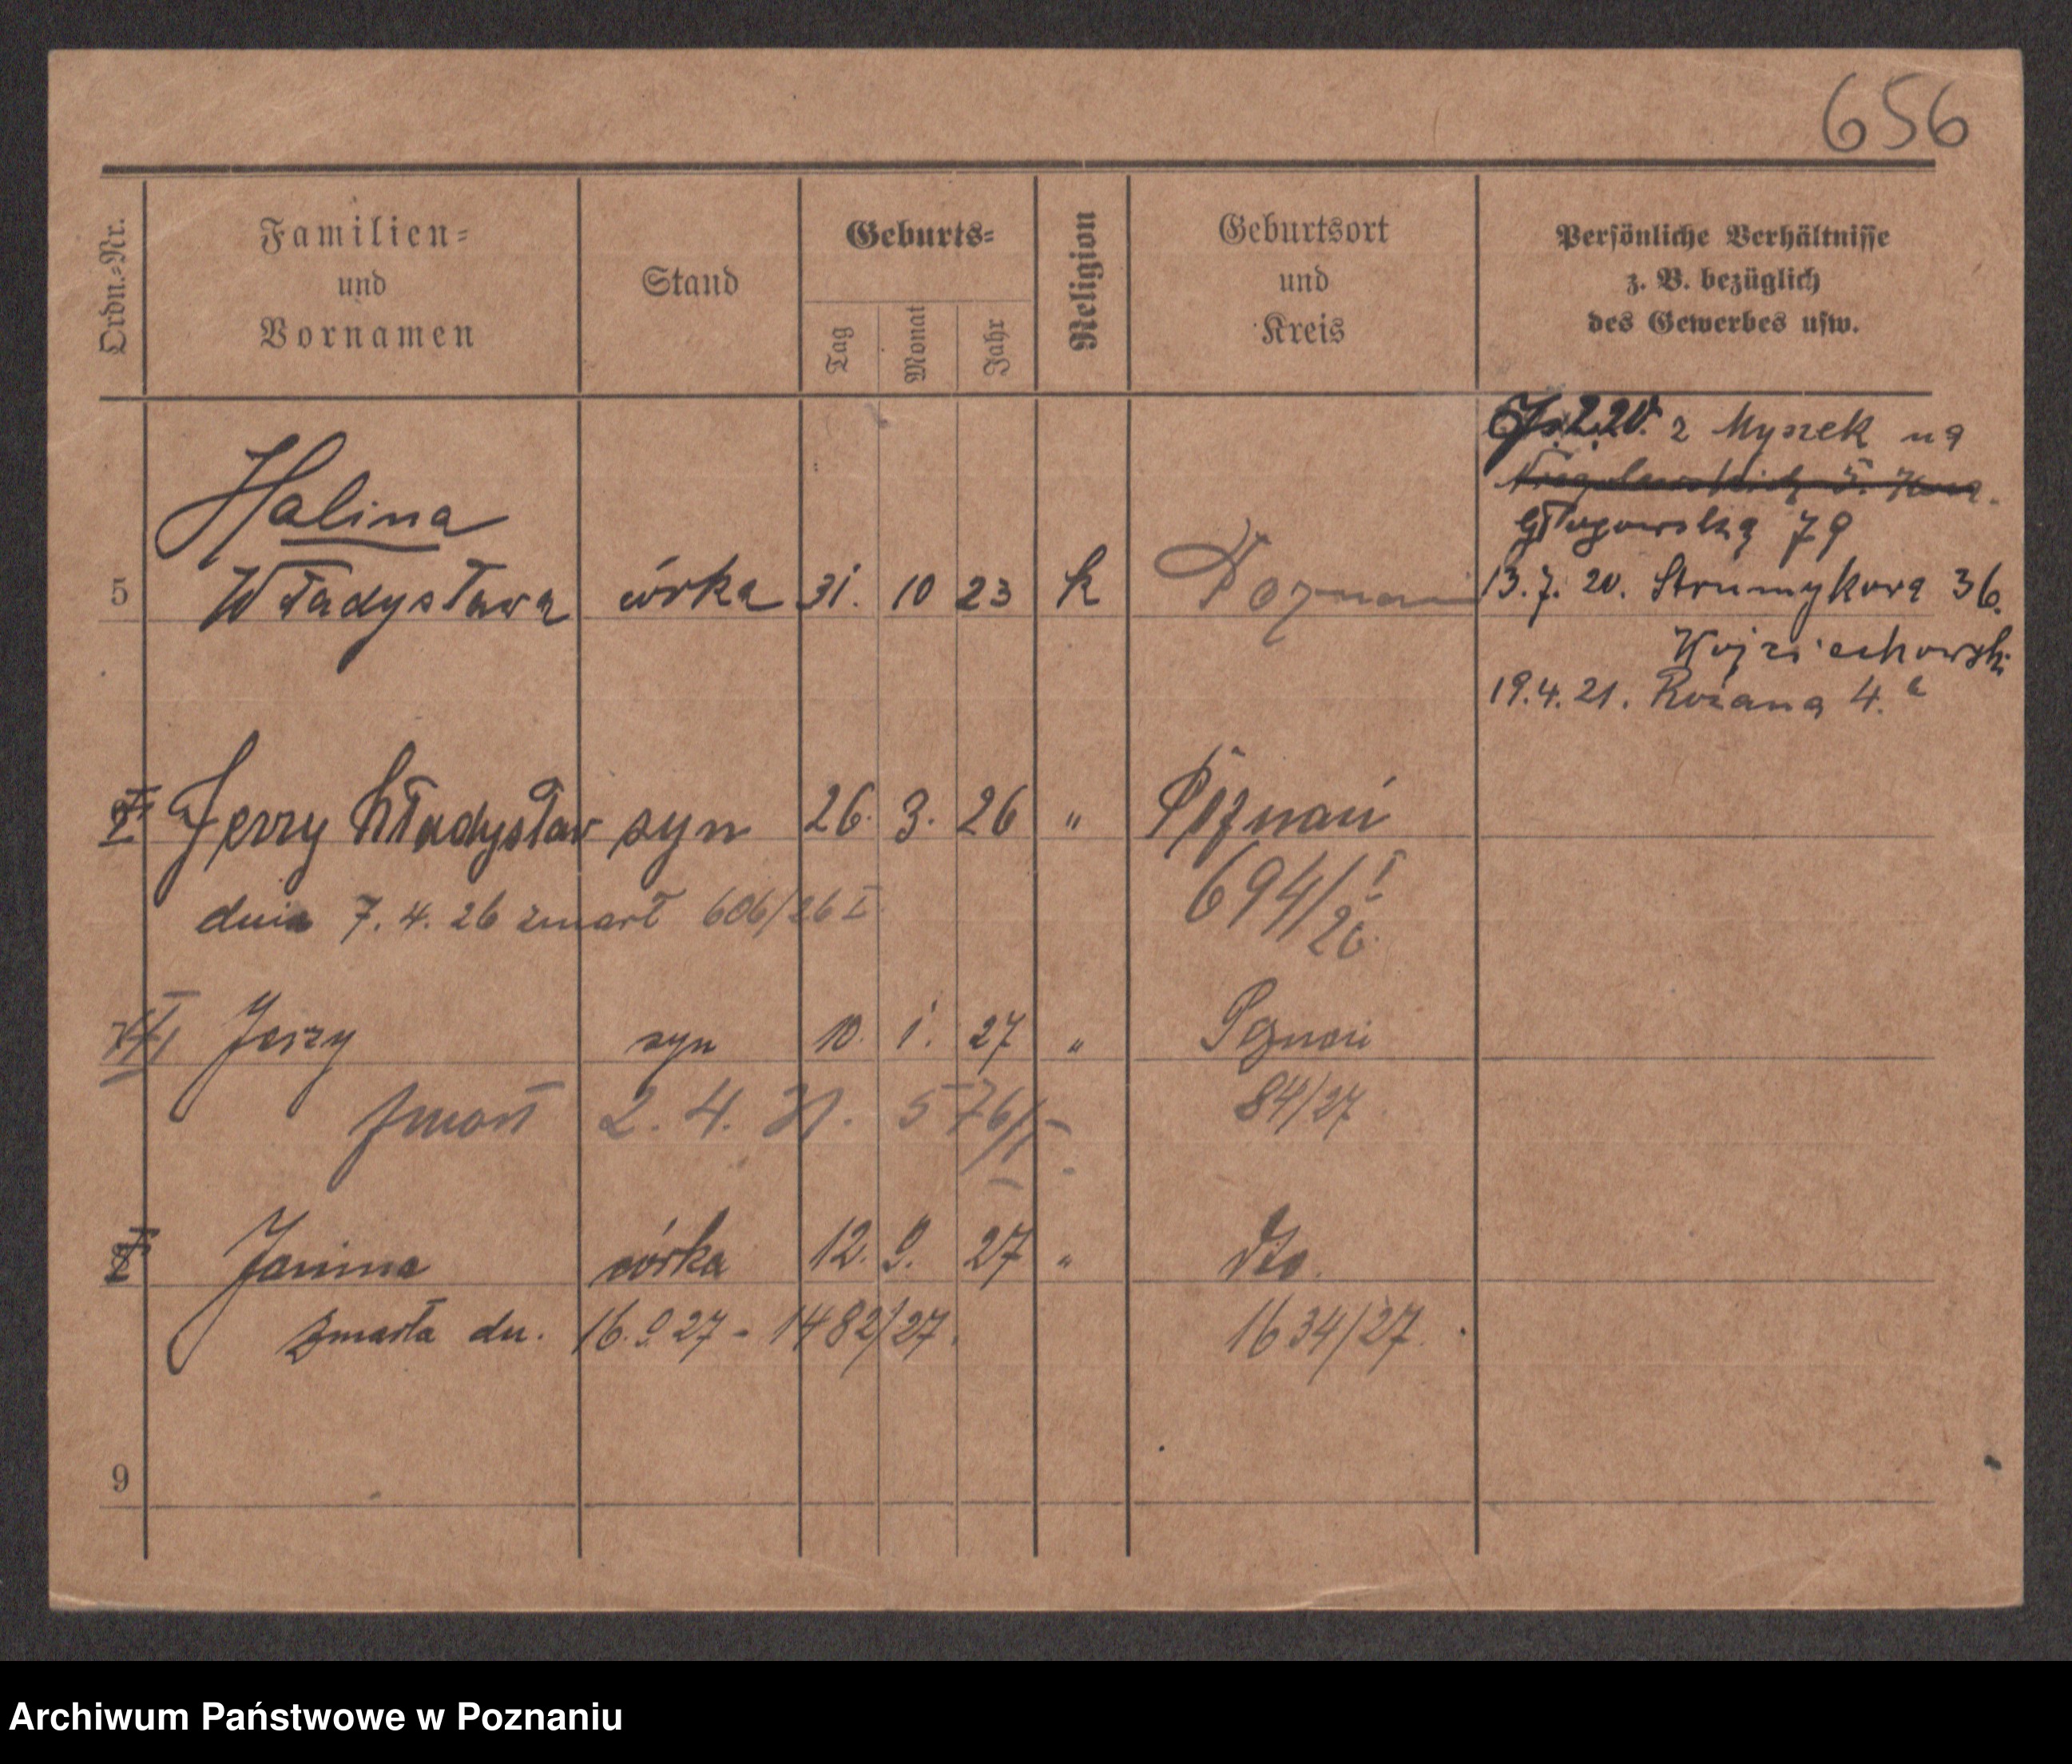 656
Ordn.-Nr.
Familien-
und
Vornamen
Stand
Geburts-
Tag
Monat
Jahr
Religion
Geburtsort
und
Kreis
Persönliche Verhältnisse
z. B. bezüglich
des Gewerbes usw.
2.20. z Myszek na
Głogowską 79
13.7. 20. Strumykowa 36.
Wojciechowski
19.4.21. Różana 4.a
Halina
5 Władysława córka 31. 10 23 k Poznań
Jerzy Władysław syn 26. 3. 26 " Poznań
694/I 26.
dnia 7. 4. 26 zmarł 606/26 I
Jerzy syn 10. 1. 27 " Poznań
84/27
zmarł 2. 4. 576/I
Janina córka 12. 9. 27 " dto.
zmarła dn. 16. 9. 27 - 1482/27. 1634/27.
9
Archiwum Państwowe w Poznaniu